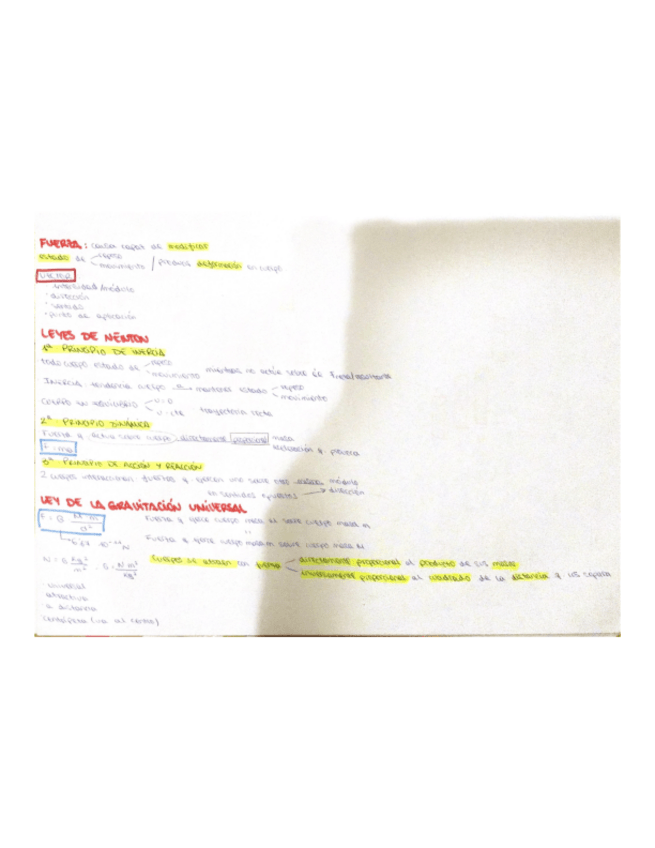 FUERZA: causa capaz de modificar
estado de reposo
movimiento / produce deformación en cuerpo
VECTOR
- intensidad/módulo
- dirección
- sentido
- punto de aplicación
LEYES DE NEWTON
1ª PRINCIPIO DE INERCIA
todo cuerpo estado de reposo
movimiento mientras no actúe sobre él fuerza/resultante
INERCIA: tendencia cuerpo a mantener estado reposo
movimiento
CUERPO EN EQUILIBRIO v=0
v=cte trayectoria recta
2ª PRINCIPIO DINÁMICA
Fuerza q. actúa sobre cuerpo directamente proporcional masa
aceleración q. provoca
F = m·a
3ª PRINCIPIO DE ACCIÓN Y REACCIÓN
2 cuerpos interaccionan fuerzas q. ejercen uno sobre otro módulo
en sentidos opuestos → dirección
LEY DE LA GRAVITACIÓN UNIVERSAL
F = G M·m / d² Fuerza q ejerce cuerpo masa M sobre cuerpo masa m
6'67 · 10⁻¹¹ N Fuerza q ejerce cuerpo masa m sobre cuerpo masa M
N = G kg²/m² · G = N m²/kg² Cuerpos se atraen con fuerza directamente proporcional al producto de sus masas
inversamente proporcional al cuadrado de la distancia q los separa
- universal
atractiva
a distancia
centrípeta (va al centro)